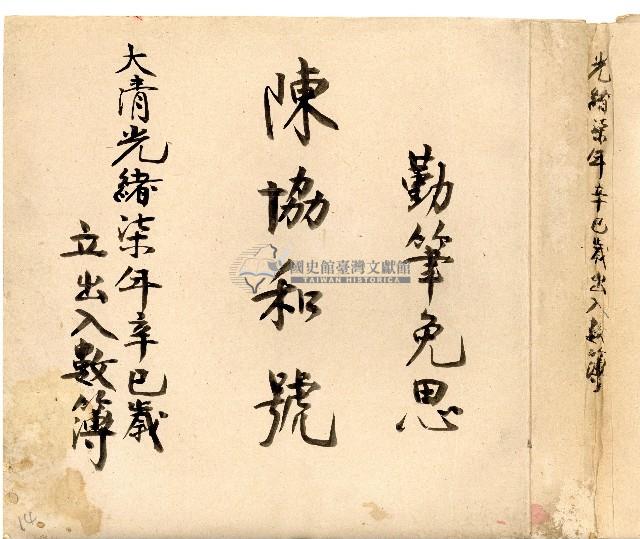 光緒柒年辛巳歲出入數簿
勤筆免思
陳協和號
大清光緒柒年辛巳歲
立出入數簿
國史館臺灣文獻館
TAIWAN HISTORICA
14